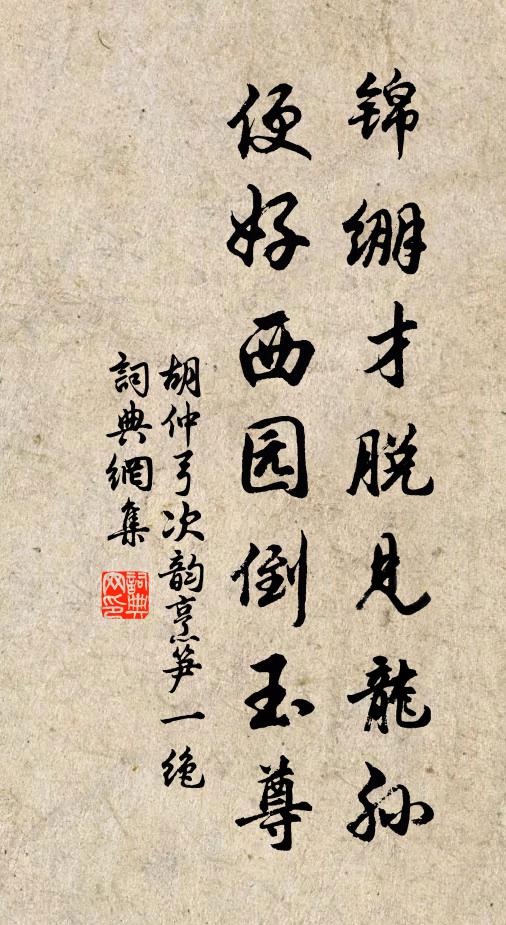 锦绷才脱见龍孙
便好西园倒玉尊
胡仲弓次韵烹笋一绝
詞典網集
詞典网印